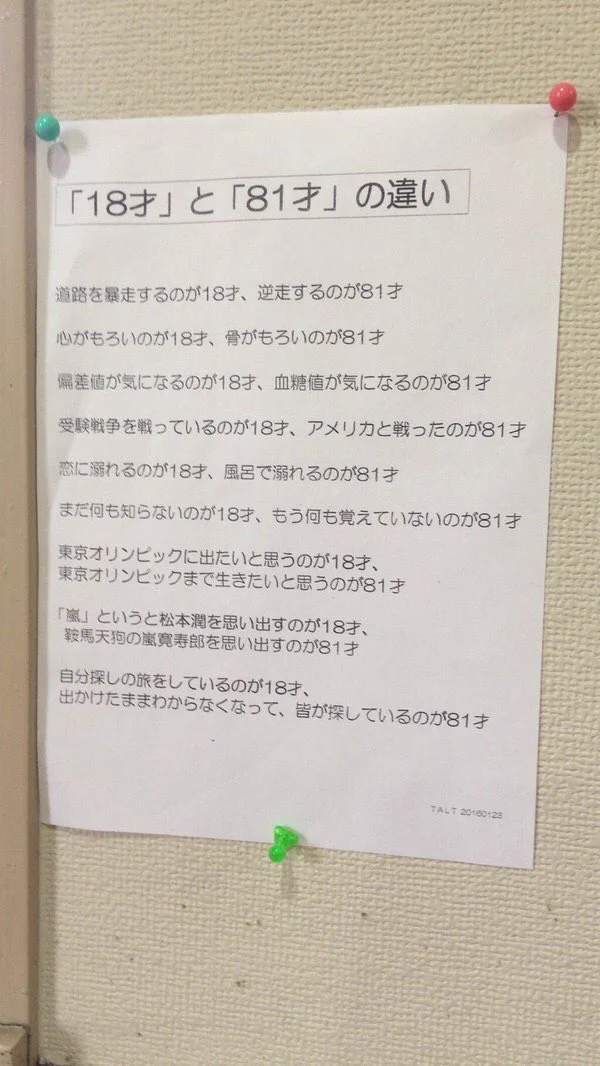 「18才」と「81才」の違い
道路を暴走するのが18才、逆走するのが81才
心がもろいのが18才、骨がもろいのが81才
偏差値が気になるのが18才、血糖値が気になるのが81才
受験戦争を戦っているのが18才、アメリカと戦ったのが81才
恋に溺れるのが18才、風呂で溺れるのが81才
まだ何も知らないのが18才、もう何も覚えていないのが81才
東京オリンピックに出たいと思うのが18才、
東京オリンピックまで生きたいと思うのが81才
「嵐」というと松本潤を思い出すのが18才、
鞍馬天狗の嵐寛寿郎を思い出すのが81才
自分探しの旅をしているのが18才、
出かけたままわからなくなって、皆が探しているのが81才
TALT 20160123